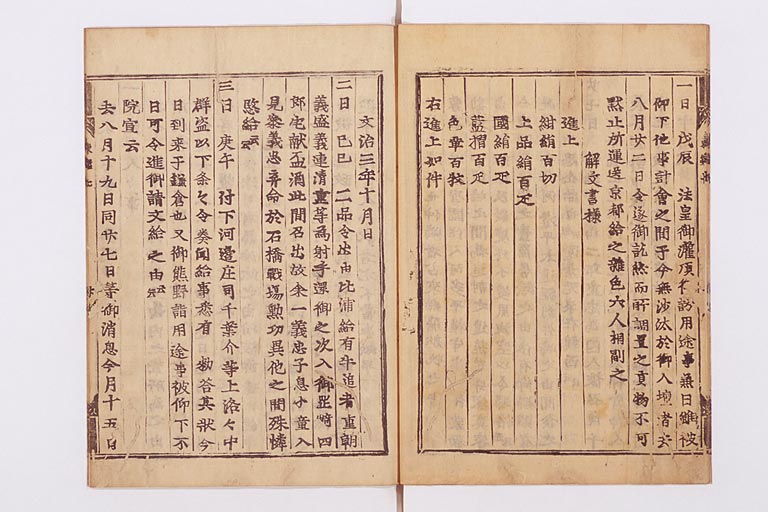 一日 戊辰 法皇御灌頂御訪用途事兼日雖被
仰下他事計會之間于今無沙汰於御入壇者去
八月廿二日令遂御訖然而所調置之貢物不可
黙止所運送京都給之雜色六人相副之
解文書樣
進上
紺絹百切
上品絹百疋
國絹百疋
藍摺百疋
色革百枚
右進上如件
文治三年十月日
二日 己巳 二品令出由比浦給有牛追者重朝
義盛義連清重等爲射手還御之次入御岡崎四
郎宅献盃酒此間召出故余一義忠子息小童入
見參義忠弃命於石橋戰塲勲功異他之間殊憐
愍給云云
三日 庚午 付下河邊庄司千葉介等上洛々中
群盗以下条々令奏聞給事悉有 勅答其狀今
日到來于鎌倉也又御熊野詣用途事被仰下不
日可令進御請文給之由云云
院宣云
去八月十九日同廿七日等御消息今月十五日